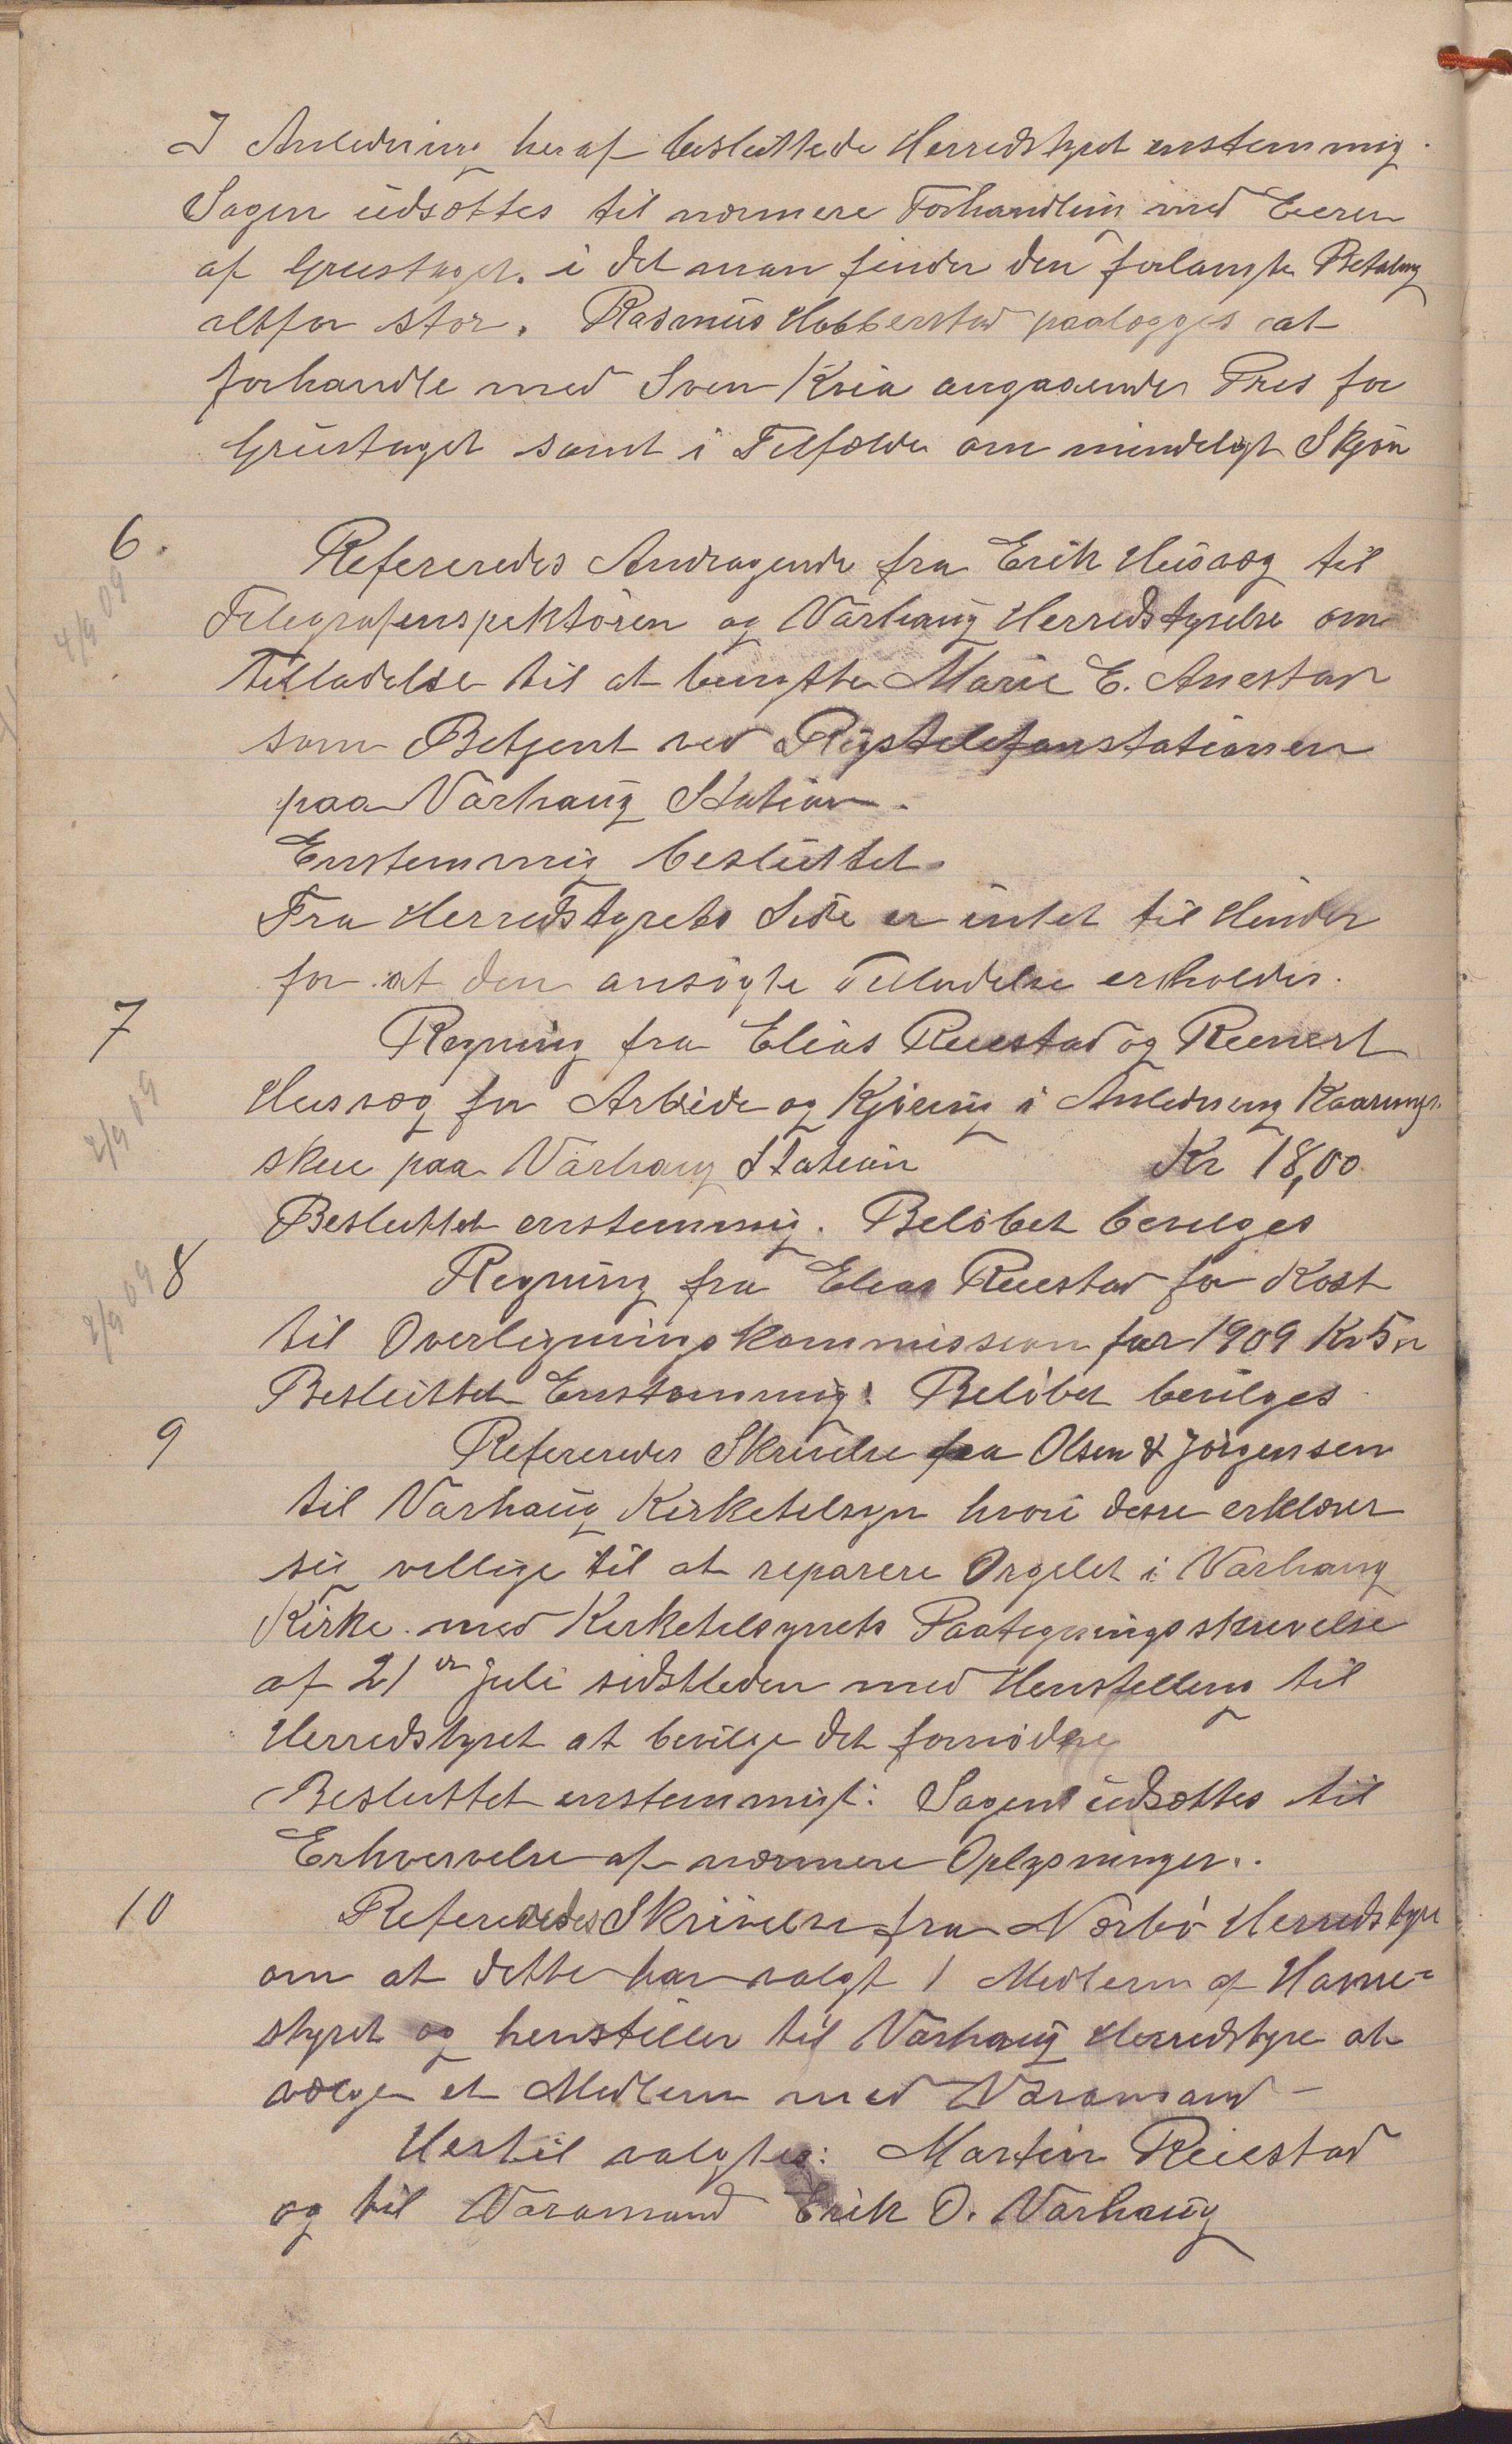 I Anledning heraf besluttede Herredstyret enstemmig.
Sagen udsættes til nærmere Forhandling med Eieren
af Grustaget. i det man finder den forlangte Betaling
altfor stor. Rasmus Hobberstad paalægges at
forhandle med Sven Kvia angaaende Pris for
Grustaget samt i Tilfælde om mindeligt Skjøn
6.
Refereredes Andragende fra Erik Husvæg til
4/9 09
Telegrafinspektøren og Varhaug Herredstyrelse om
Tilladelse til at benytte Marie E. Anestad
som Betjent ved Rigstelefonstationen
paa Varhaug Station.
Enstemmig besluttet.
Fra Herredstyrets Side er intet til Hinder
for at den ansøgte Tilladelse erholdes.
7
Regning fra Elias Reiestad og Reinert
2/9 09
Husvæg for Arbeide og Kjøring i Anledning Kaarings-
skue paa Varhaug Station Kr 18,00
Besluttet enstemmig. Beløbet bevilges
8
Regning fra Elias Reiestad for Kost
2/9 09
til Overligningskommission for 1909 Kr 5,00
Besluttet Enstemmig: Beløbet bevilges
9
Refereredes Skrivelse fra Olsen & Jørgensen
til Varhaug Kirketilsyn hvori disse erklærer
sig villige til at reparere Orgelet i Varhaug
Kirke. med Kirketilsynets Paategningsskrivelse
af 21de Juli sidstleden med Henstilling til
Herredstyret at bevilge det fornødne
Besluttet enstemmigt: Sagen udsættes til
Erhvervelse af nærmere Oplysninger.
10
Refereredes Skrivelse fra Nærbø Herredstyre
om at dette har valgt 1 Medlem af Havne-
styret og henstiller til Varhaug Herredstyre at
vælge et Medlem med Varamand -
Hertil valgtes: Martin Reiestad
og til Varamand Erik O. Varhaug